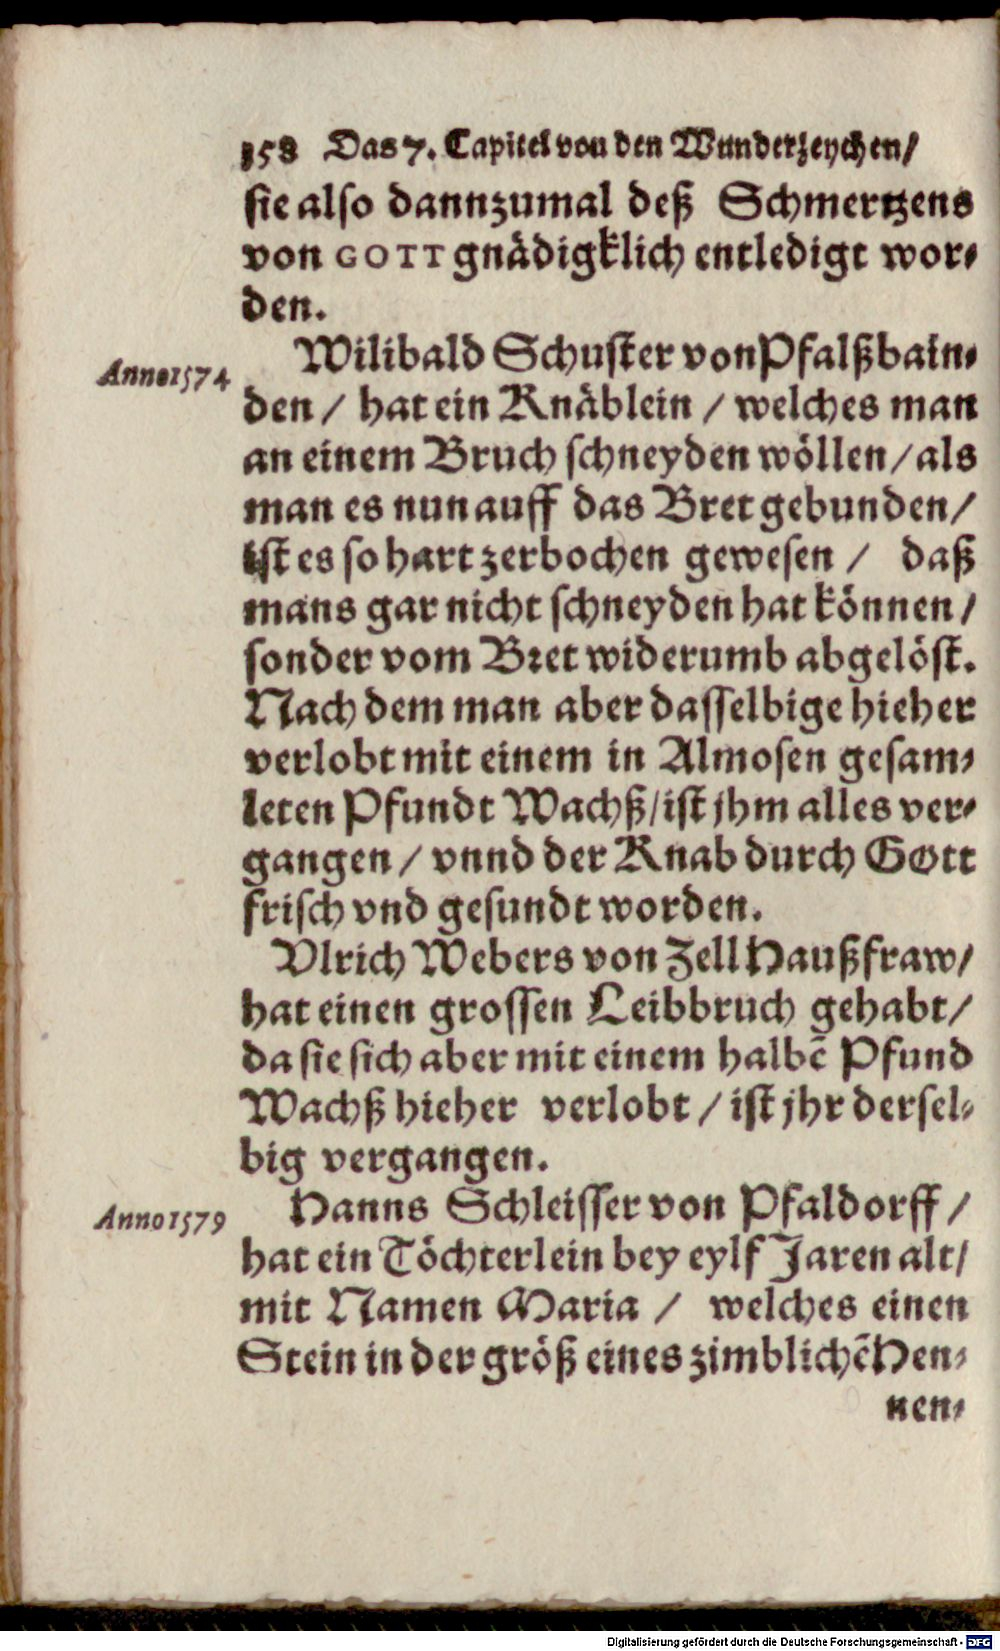 158 Das 7. Capitel von den Wunderzeychen/
sie also dannzumal deß Schmertzens
von GOTT gnädigklich entledigt wor⸗
den.
Anno 1574
Wilibald Schuster von Pfalßbain⸗
den / hat ein Knäblein / welches man
an einem Bruch schneyden wöllen / als
man es nun auff das Bret gebunden /
ist es so hart zerbochen gewesen / daß
mans gar nicht schneyden hat können /
sonder vom Bret widerumb abgelöst.
Nach dem man aber dasselbige hieher
verlobt mit einem in Almosen gesam⸗
leten Pfundt Wachß / ist jhm alles ver⸗
gangen / vnnd der Knab durch GOtt
frisch vnd gesundt worden.
Vlrich Webers von Zell Haußfraw /
hat einen grossen Leibbruch gehabt /
da sie sich aber mit einem halbē Pfund
Wachß hieher verlobt / ist jhr dersel⸗
big vergangen.
Anno 1579
Hanns Schleisser von Pfaldorff /
hat ein Töchterlein bey eylf Jaren alt /
mit Namen Maria / welches einen
Stein in der größ eines zimblichē Hen⸗
nen⸗
Digitalisierung gefördert durch die Deutsche Forschungsgemeinschaft - DFG